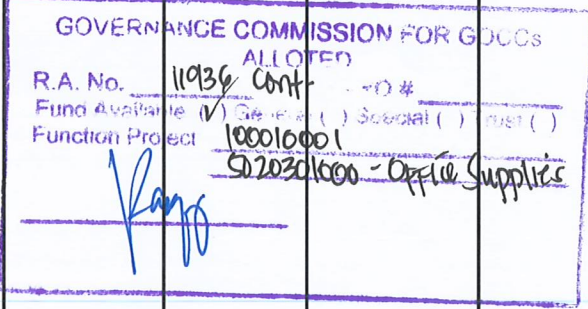 GOVERNANCE COMMISSION FOR GOCCs
ALLOTED
R.A. No. 11936 Cont. O #
Fund Available (√) General ( ) Special ( ) Trust ( )
Function Project 100010001
5020301000 - Office Supplies